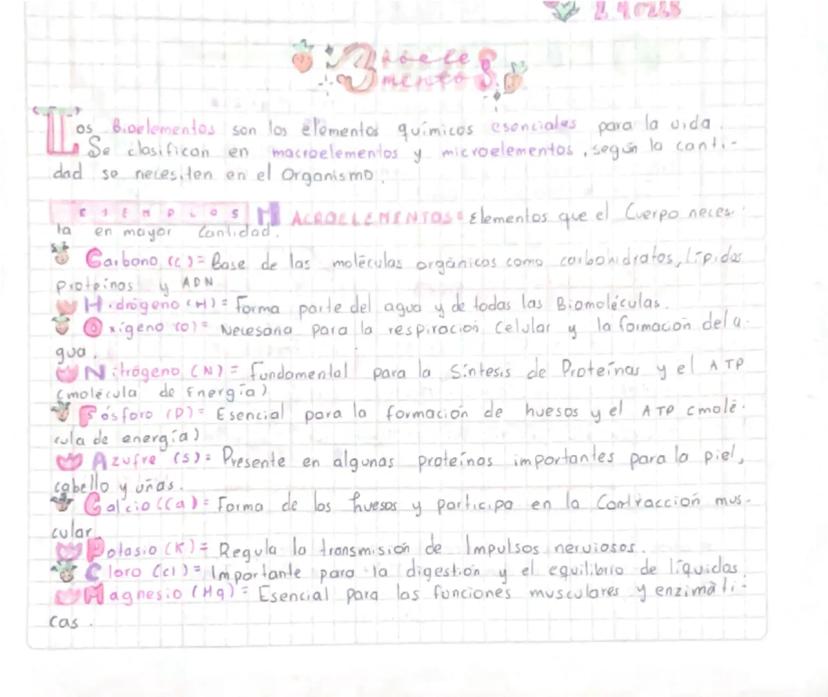 Bioele
mentoS
Los Bioelementos son los elementos químicos esenciales para la vida.
Se clasifican en macroelementos y microelementos, según la canti-
dad se necesiten en el Organismo.
EJEMPLOS MACROELEMENTOS= Elementos que el Cuerpo neces-
ta en mayor Cantidad.
Carbono (C) = Base de las moléculas orgánicos como carbohidratos, lípidos
proteínas y ADN
Hidrógeno (H) = Forma parte del agua y de todas las Biomoléculas.
Oxígeno (O) = Necesaria para la respiración Celular y la formación del a-
gua.
Nitrógeno (N) = fundamental para la Síntesis de Proteínas y el ATP
(molécula de Energía)
Fósforo (P) = Esencial para la formación de huesos y el ATP (molé-
cula de energía)
Azufre (S) = Presente en algunas proteínas importantes para la piel,
cabello y uñas.
Calcio (Ca) = Forma de los huesos y participa en la Contracción mus-
cular
Potasio (K) = Regula la transmisión de Impulsos nerviosos.
Cloro (cl) = Importante para la digestión y el equilibrio de líquidos
Magnesio (Mg) = Esencial para las funciones musculares y enzimáti-
cas.